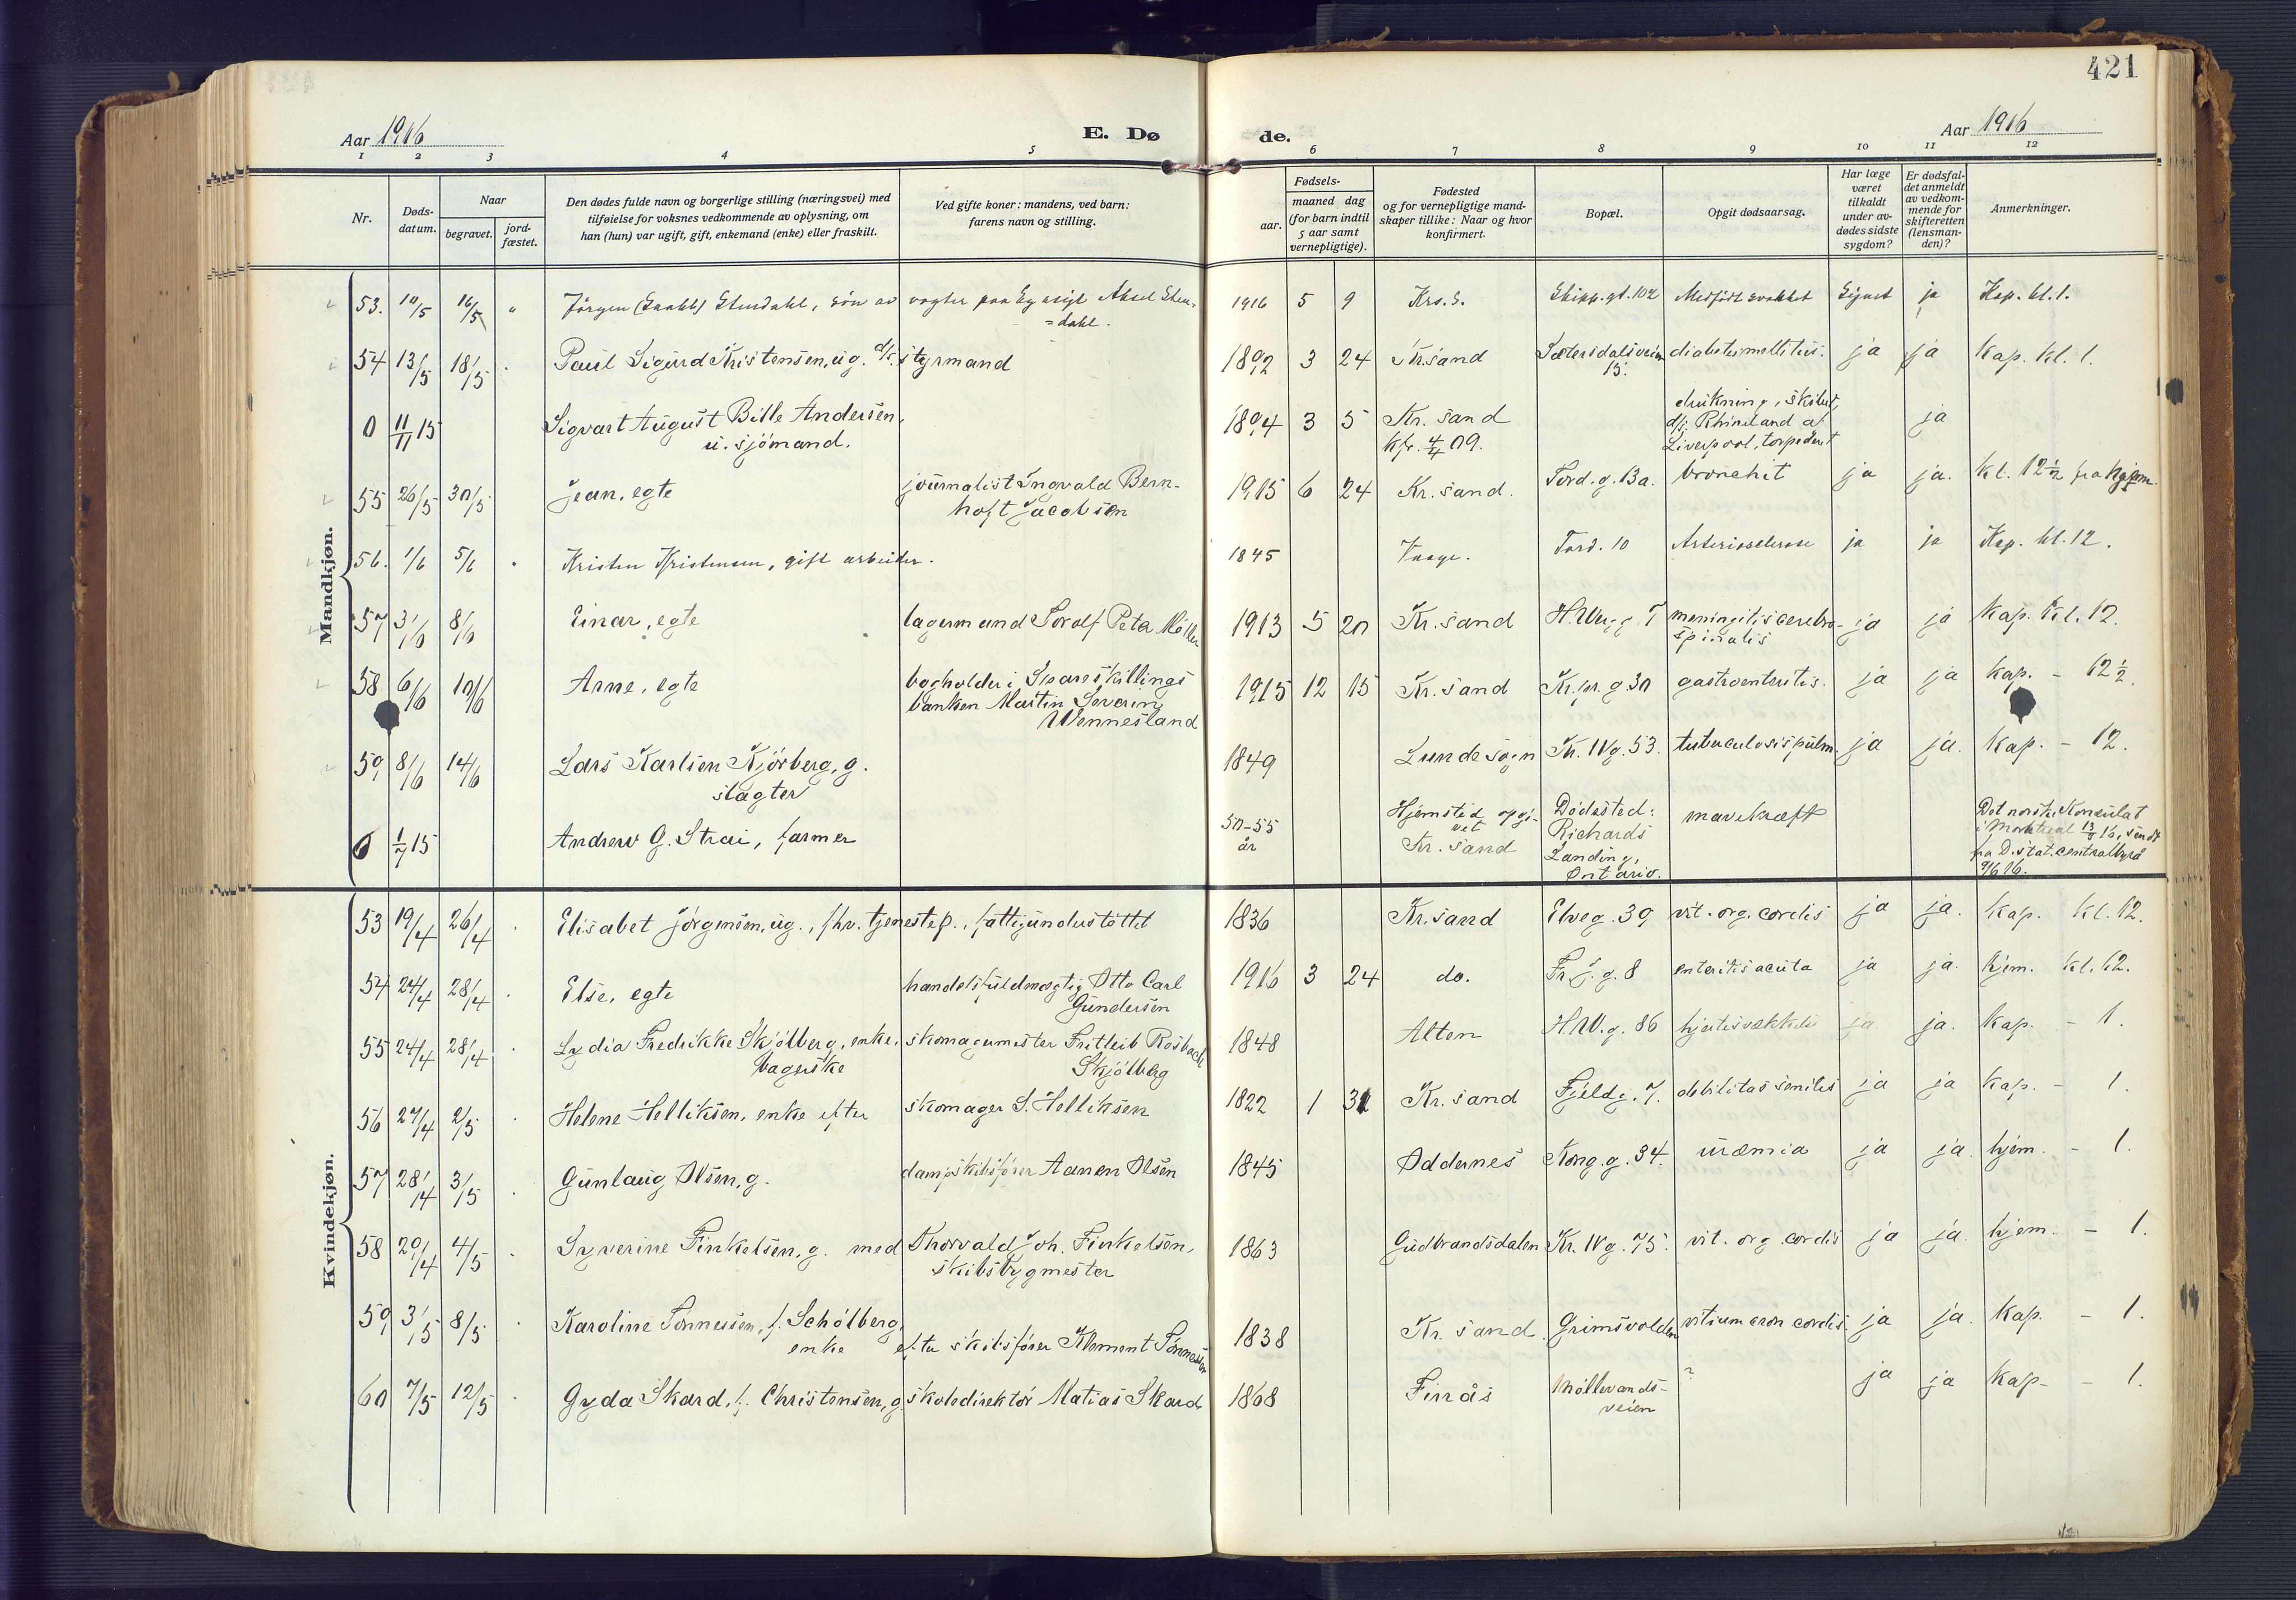 421
Aar 1916 E. Dø de. Aar 1916
1 2 3 4 5 6 7 8 9 10 11 12
Nr. Døds-datum. Naar begravet. jord-fæstet. Den dødes fulde navn og borgerlige stilling (næringsvei) med tilføielse for voksnes vedkommende av oplysning, om han (hun) var ugift, gift, enkemand (enke) eller fraskilt. Ved gifte koner: mandens, ved barn: farens navn og stilling. Fødsels- aar. maaned dag (for barn indtil 5 aar samt vernepligtige). Fødested og for vernepligtige mand-skaper tillike: Naar og hvor konfirmert. Bopæl. Opgit dødsaarsag. Har læge været tilkaldt under av-dødes sidste sygdom? Er dødsfal-det anmeldt av vedkom-mende for skifteretten (lensman-den)? Anmerkninger.
Mandkjøn.
53. 10/5 16/5 " Jörgen Stendahl, sön av vogter paa Eg asyl Aksel Sten-
=dahl. 1916 5 9 Krs. S. Skipp. gt. 102 Medfödt svakhet ja Kap. kl. 1.
54 13/5 18/5 Paul Sigurd Kristensen, ug. styrmand 1892 3 24 Kr.sand Sætersdalsveien 15. diabetes mellitus. ja ja Kap. kl. 1.
0 11/11 15 Sigvart August Bille Andersen,
u. sjömand. 1894 3 5 Kr. sand
Kfr. 4/4 09. drukning, skibet,
d/s Rhineland av
Liverpool, torpedert ja
55 26/5 30/5 Jean, egte journalist Ingvald Bern-
hoft Jacobsen 1915 6 24 Kr. sand. Tord. g. 13a. bronchit ja ja. kl. 12½ fra hjem.
56. 1/6 5/6 " Kristen Kristensen, gift arbeider. 1845 Vaage. Tord. 10 Arteriosclerose ja ja Kap. kl. 12.
57 3/6 8/6 Einar, egte lagermand Torolf Peta Möller 1913 5 20 Kr. sand H. Werg. g. 7 meningitis cerebro-
spinalis ja ja Kap. kl. 12.
58 6/6 10/6 Arne, egte bogholder i Spareskillings
banken Martin Severin
Wennesland 1915 12 15 Kr. sand Kr. pr. g 30 gastroenteritis. ja ja Kap. - 12½.
59 8/6 14/6 Lars Karlsen Kjörberg, g.
slagter 1849 Lunde sogn Kr. IVg. 53. tuberculosis pulm. ja ja. Kap. - 12.
0 1/7 15 Andrew G. Strai, farmer 50-55
år Hjemsted opgi-
vet
Kr. sand Dödssted:
Richards
Landing,
Ontario. mavekræft Det norske Konsulat
i Montreal 13/5 16, sendt
fra D. stat. centralbyrå
9/6 16.
Kvindekjøn.
53 19/4 26/4 Elisabet Jörgensen, ug., fhv. tjenestep., fattigunderstöttet 1836 Kr. sand Elveg. 39 vit. org. cordis ja ja. Kap. kl. 12.
54 24/4 28/4 Else, egte handelsfuldmægtig Otto Carl
Gundersen 1916 3 24 do. Fr. J. g. 8 enteritis acuta ja ja. hjem. kl. 12.
55 24/4 28/4 Lydia Fredrikke Skjölberg, enke, skomagermester Fritleib Rosbach
bagerske Skjölberg 1848 Alten H.W.g. 86 hjertesvækkelse ja ja. Kap. - 1.
56 27/4 2/5 Helene Helliksen, enke efter skomager S. Helliksen 1822 1 31 Kr. sand Fjeldg. 7. debilitas senilis ja ja Kap. - 1.
57 28/4 3/5 Gunlaug Olsen, g. dampskibsfører Aanen Olsen 1845 Oddernes Kong. g. 34. uræmia ja ja. hjem. - 1.
58 29/4 4/5 Syverine Finkelsen, g. med Thorvald Joh. Finkelsen,
skibsbygmester 1863 Gudbrandsdalen Kr. IVg. 75. vit. org. cordis ja ja. hjem. - 1.
59 3/5 8/5 Karoline Tönnessen, f. Schölberg,
enke efter skibsförer Klement Tönnessen 1838 Kr. sand Grimsvolden vitium cron cordis ja ja. Kap. - 1.
60 7/5 12/5 Gyda Skard, f. Christensen, g. skoledirektör Matias Skard 1868 Finnås Möllevands-
veien ? ja ja Kap - - 1.